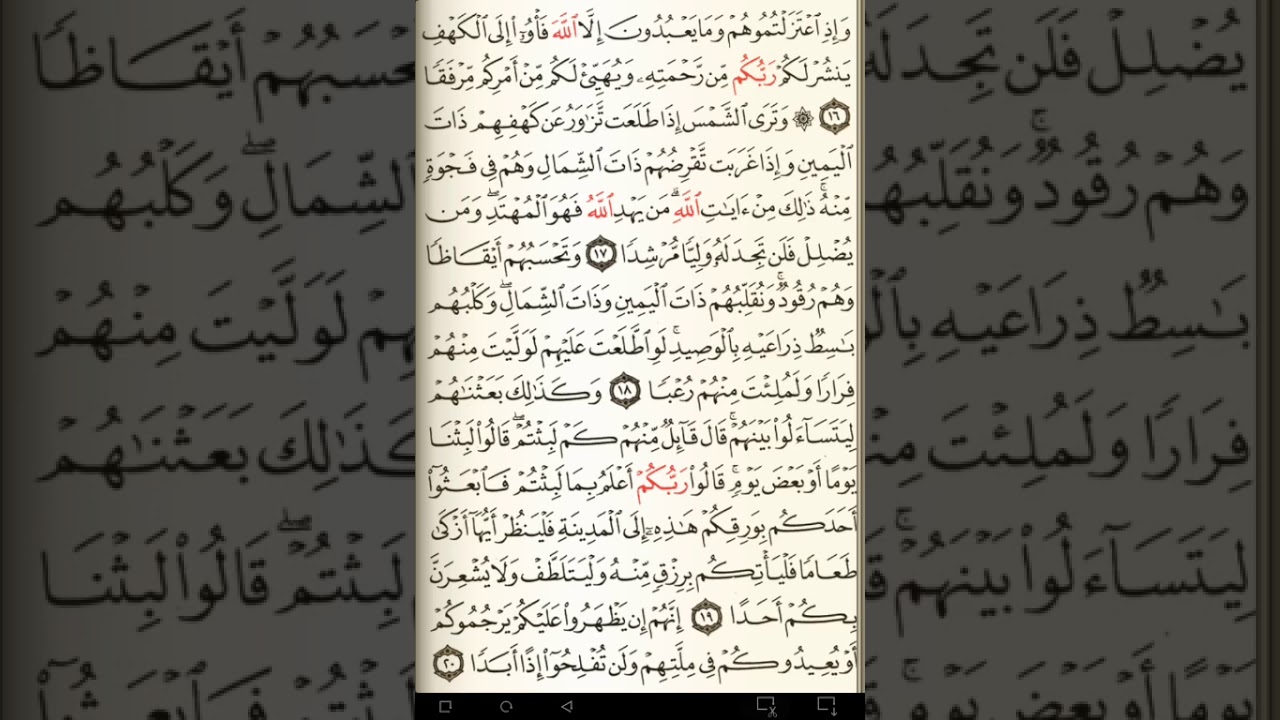 وَإِذِ ٱعْتَزَلْتُمُوهُمْ وَمَا يَعْبُدُونَ إِلَّا ٱللَّهَ فَأْوُۥٓا۟ إِلَى ٱلْكَهْفِ
يَنشُرْ لَكُمْ رَبُّكُم مِّن رَّحْمَتِهِۦ وَيُهَيِّئْ لَكُم مِّنْ أَمْرِكُم مِّرْفَقًا
١٦ ۞ وَتَرَى ٱلشَّمْسَ إِذَا طَلَعَت تَّزَٰوَرُ عَن كَهْفِهِمْ ذَاتَ
ٱلْيَمِينِ وَإِذَا غَرَبَت تَّقْرِضُهُمْ ذَاتَ ٱلشِّمَالِ وَهُمْ فِى فَجْوَةٍ
مِّنْهُ ۚ ذَٰلِكَ مِنْ ءَايَـٰتِ ٱللَّهِ ۗ مَن يَهْدِ ٱللَّهُ فَهُوَ ٱلْمُهْتَدِ ۖ وَمَن
يُضْلِلْ فَلَن تَجِدَ لَهُۥ وَلِيًّا مُّرْشِدًا ١٧ وَتَحْسَبُهُمْ أَيْقَاظًا
وَهُمْ رُقُودٌ ۚ وَنُقَلِّبُهُمْ ذَاتَ ٱلْيَمِينِ وَذَاتَ ٱلشِّمَالِ ۖ وَكَلْبُهُم
بَـٰسِطٌ ذِرَاعَيْهِ بِٱلْوَصِيدِ ۚ لَوِ ٱطَّلَعْتَ عَلَيْهِمْ لَوَلَّيْتَ مِنْهُمْ
فِرَارًا وَلَمُلِئْتَ مِنْهُمْ رُعْبًا ١٨ وَكَذَٰلِكَ بَعَثْنَـٰهُمْ
لِيَتَسَآءَلُوا۟ بَيْنَهُمْ ۚ قَالَ قَآئِلٌ مِّنْهُمْ كَمْ لَبِثْتُمْ ۖ قَالُوا۟ لَبِثْنَا
يَوْمًا أَوْ بَعْضَ يَوْمٍ ۚ قَالُوا۟ رَبُّكُمْ أَعْلَمُ بِمَا لَبِثْتُمْ فَٱبْعَثُوٓا۟
أَحَدَكُم بِوَرِقِكُمْ هَـٰذِهِۦٓ إِلَى ٱلْمَدِينَةِ فَلْيَنظُرْ أَيُّهَآ أَزْكَىٰ
طَعَامًا فَلْيَأْتِكُم بِرِزْقٍ مِّنْهُ وَلْيَتَلَطَّفْ وَلَا يُشْعِرَنَّ
بِكُمْ أَحَدًا ١٩ إِنَّهُمْ إِن يَظْهَرُوا۟ عَلَيْكُمْ يَرْجُمُوكُمْ
أَوْ يُعِيدُوكُمْ فِى مِلَّتِهِمْ وَلَن تُفْلِحُوٓا۟ إِذًا أَبَدًا ٢٠